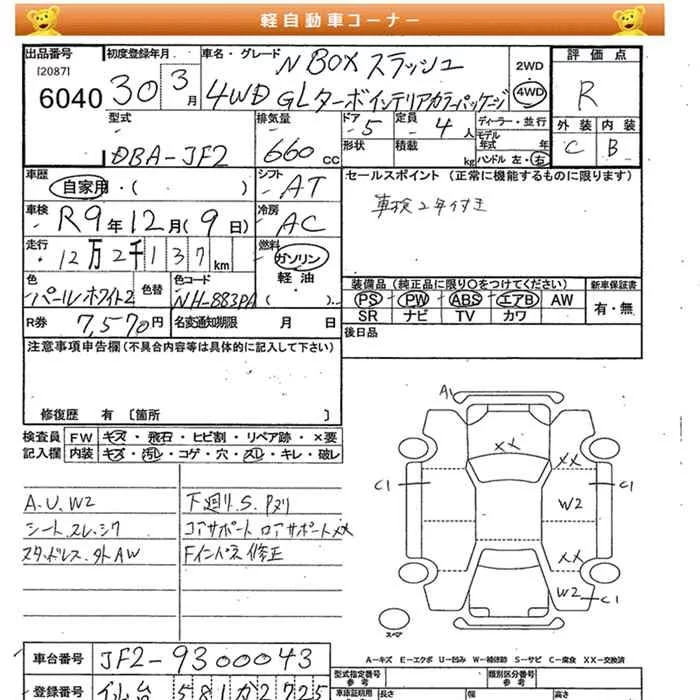 軽自動車コーナー
出品番号 初度登録年月 車名・グレード N BOX スラッシュ 2WD 評価点
[2087] 6040 30 3月 4WD GLターボインテリアカラーパッケージ 4WD R
型式 排気量 ドア 5 定員 4人 ディーラー・並行 外装 内装
DBA-JF2 660cc 形状 積載 kg モデル年式 年 ハンドル 左・右 C B
車歴 自家用・( ) シフト AT セールスポイント (正常に機能するものに限ります)
車検 R9年12月(9日) 冷房 AC 車検2年付き
走行 12万2千137km 燃料 ガソリン 軽油 ( )
色 パールホワイト2 色替 色コード NH-883PA 装備品(純正品に限り○をつけてください) 新車保証書
PS・PW・ABS・エアB AW 有・無
R券 7,570円 名変通知期限 月 日 SR ナビ TV カワ
注意事項申告欄(不具合内容等は具体的に記入して下さい) 後日品
修復歴 有〔箇所 〕
検査員 FW キズ・飛石・ヒビ割・リペア跡・×要
記入欄 内装 キズ・汚レ・コゲ・穴・スレ・キレ・破レ
A.U.W2 下廻りS.Pヌリ
シートスレ.シワ コアサポート ロアサポートXX
スタッドレス.外AW Fインパネ修正
A1
XX XX
C1 C1
W2
XX
W2 C1
スペア
A-キズ E-エクボ U-凹み W-補修跡 S-サビ C-腐食 XX-交換済
車台番号 JF2-9300043 型式指定番号 参考 類別区分番号 参考
登録番号 仙台 581か2725 車庫証明用 長さ 幅 高さ